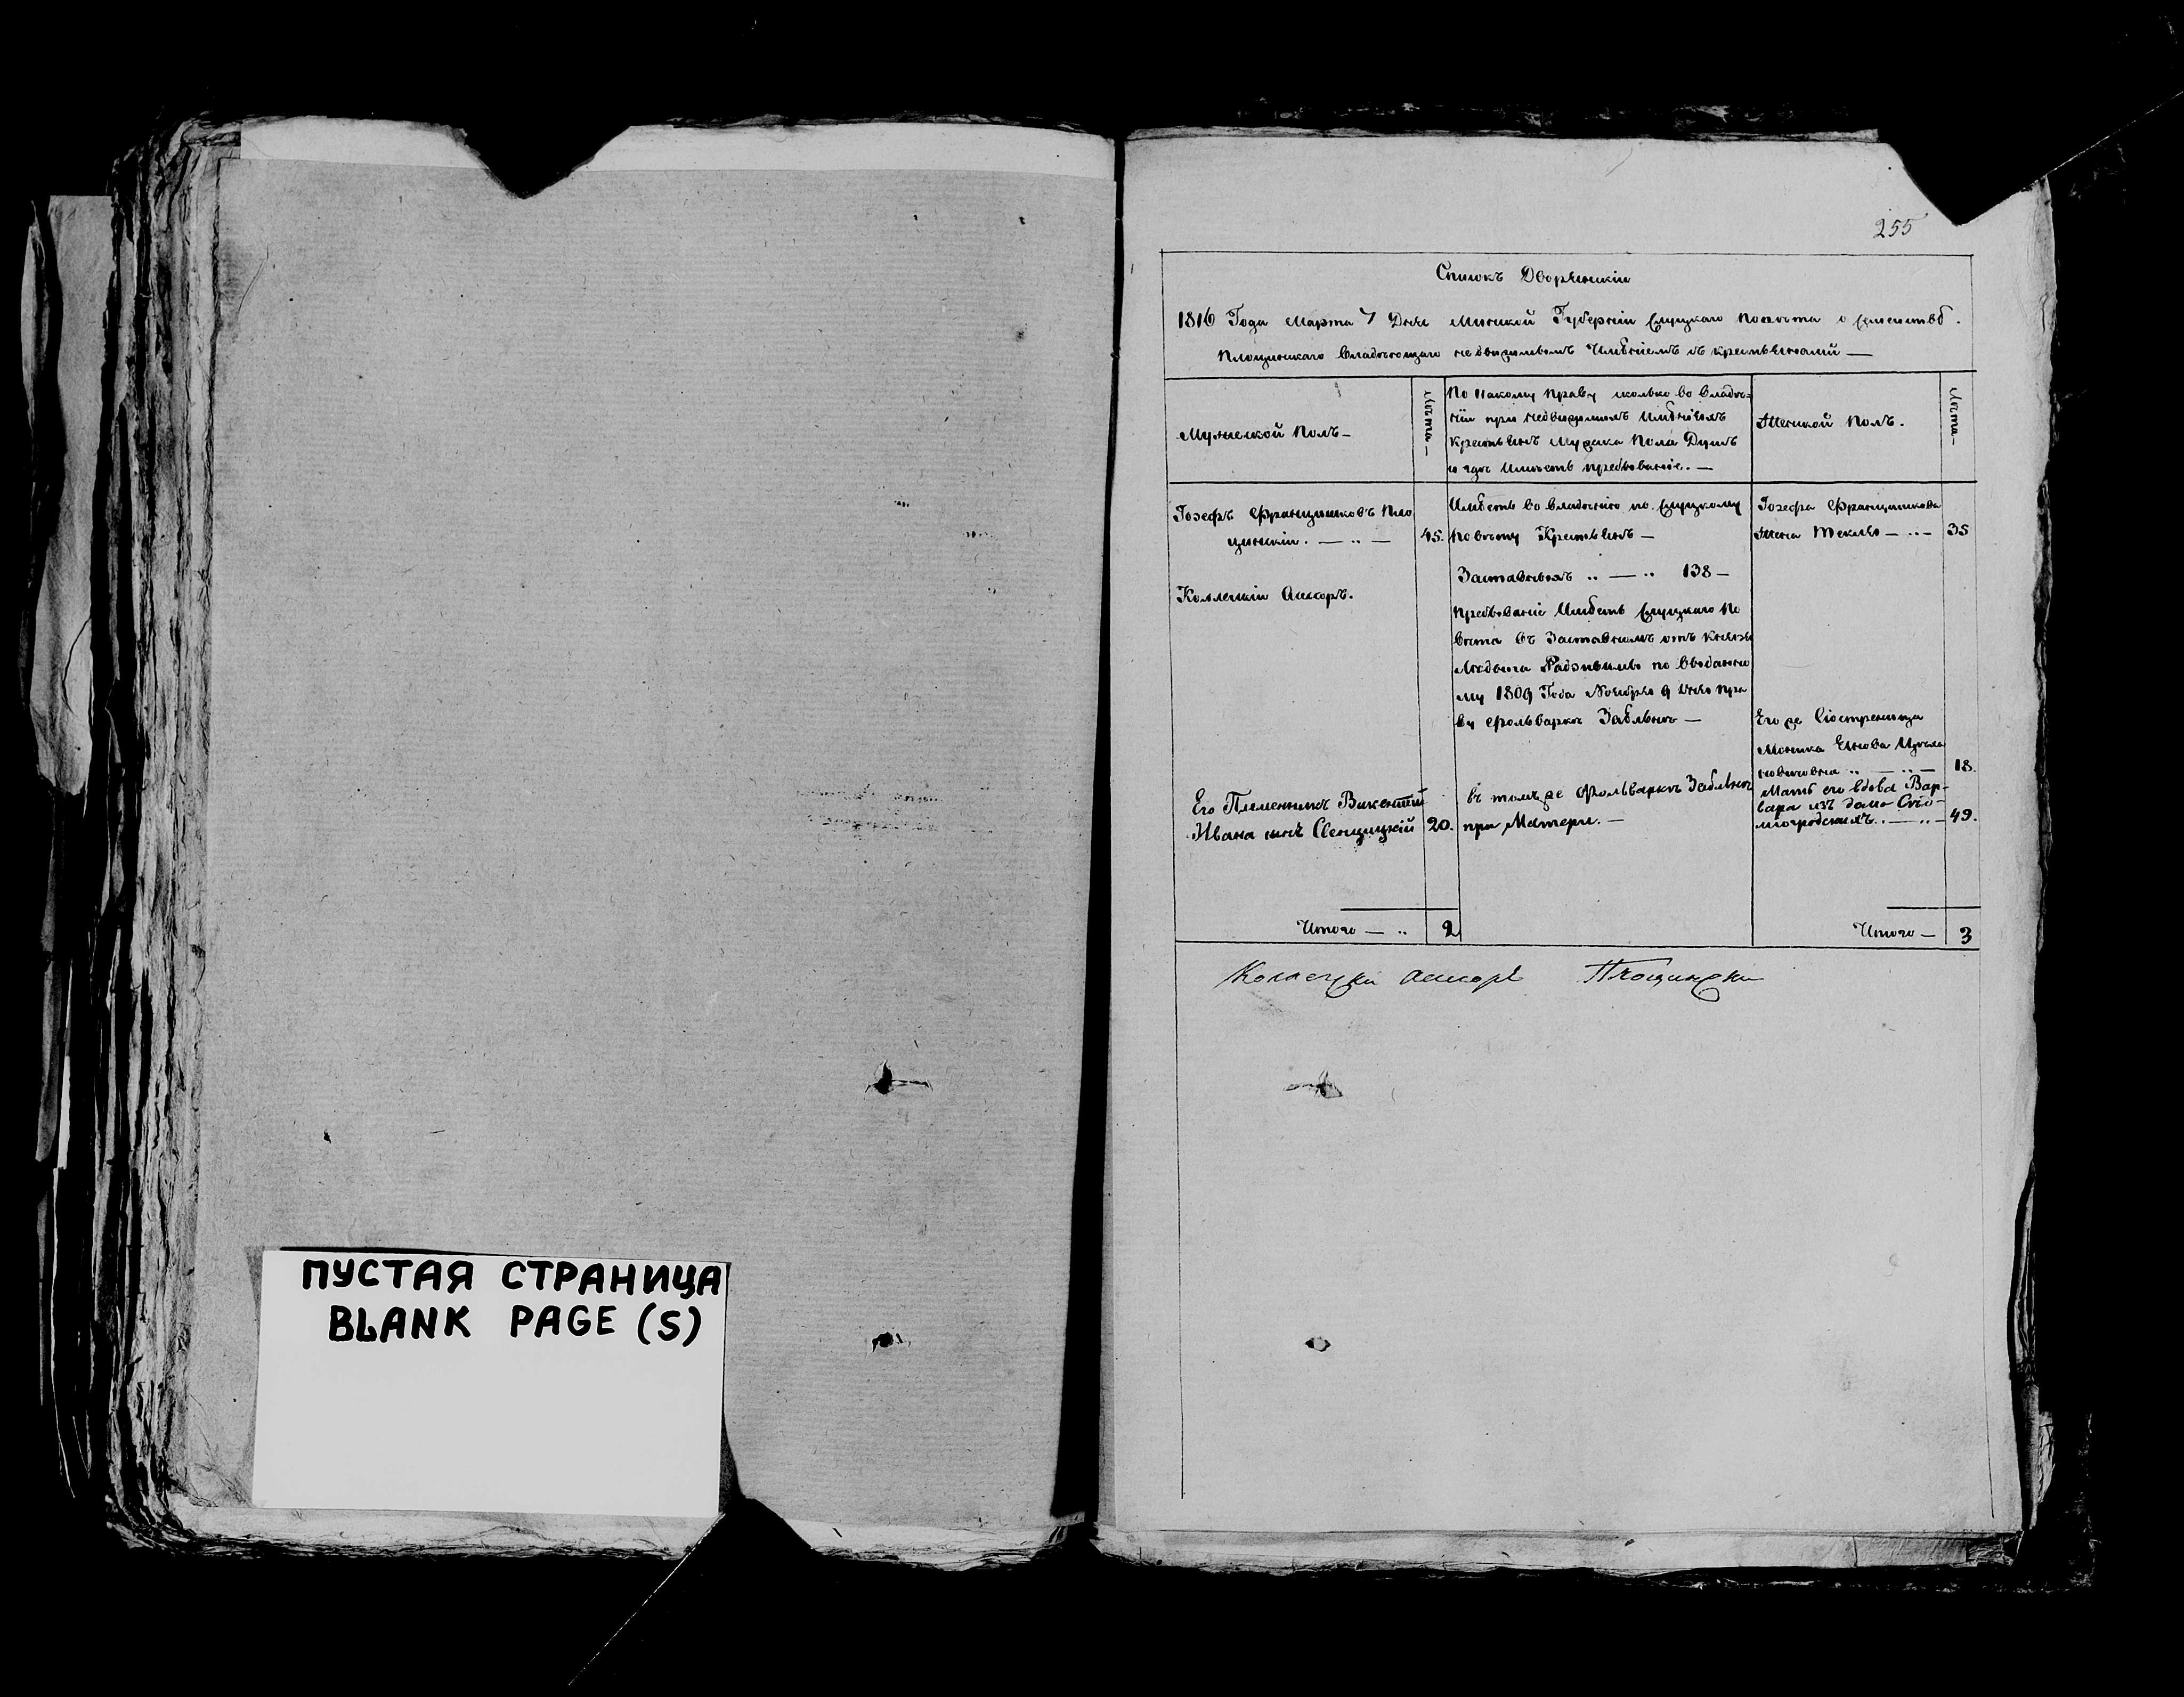 ПУСТАЯ СТРАНИЦА
BLANK PAGE (S)
255
Списокъ Дворянскiи
1816 Года Марта 7 Дня Минской Губернiи Слуцкаго Повѣта о
Площинскаго владѣющаго недвижимымъ Имѣнiемъ съ крестьянами —
Мужеской Полъ —
Лѣта —
По какому праву сколько во владѣ=
нiи при недвижимомъ имѣнiемъ
крестьянъ Мужска Пола Душъ
и где имѣетъ пребыванiе. —
Женской Полъ.
Лѣта —
Iозефъ Францишковъ Пло
щинскiи. — .. —
45.
Коллегскiи Ассесоръ.
Имѣетъ во владѣнiю по Слуцкому
Повѣту Крестьянъ —
Заставныхъ .. — .. 138 —
Пребыванiе Имѣетъ Слуцкаго По
вѣта въ Заставномъ отъ князя
Радзивилы по выданно
му 1809 Года Ноября 9 дня пра
ву фольваркѣ —
Iозефа Францишкова
Жена Текля — .. —
35
Его же Сiостреница
Моника Янова
18.
Его Племяникъ Викентий
Ивана сынъ Свенцицкiй
20.
въ томъ же Фольваркѣ
при Матери. —
Мать его вдова Вар-
вара изъ дому
49.
Итого — ..
2
Итого —
3
Колегски асесоръ Площински